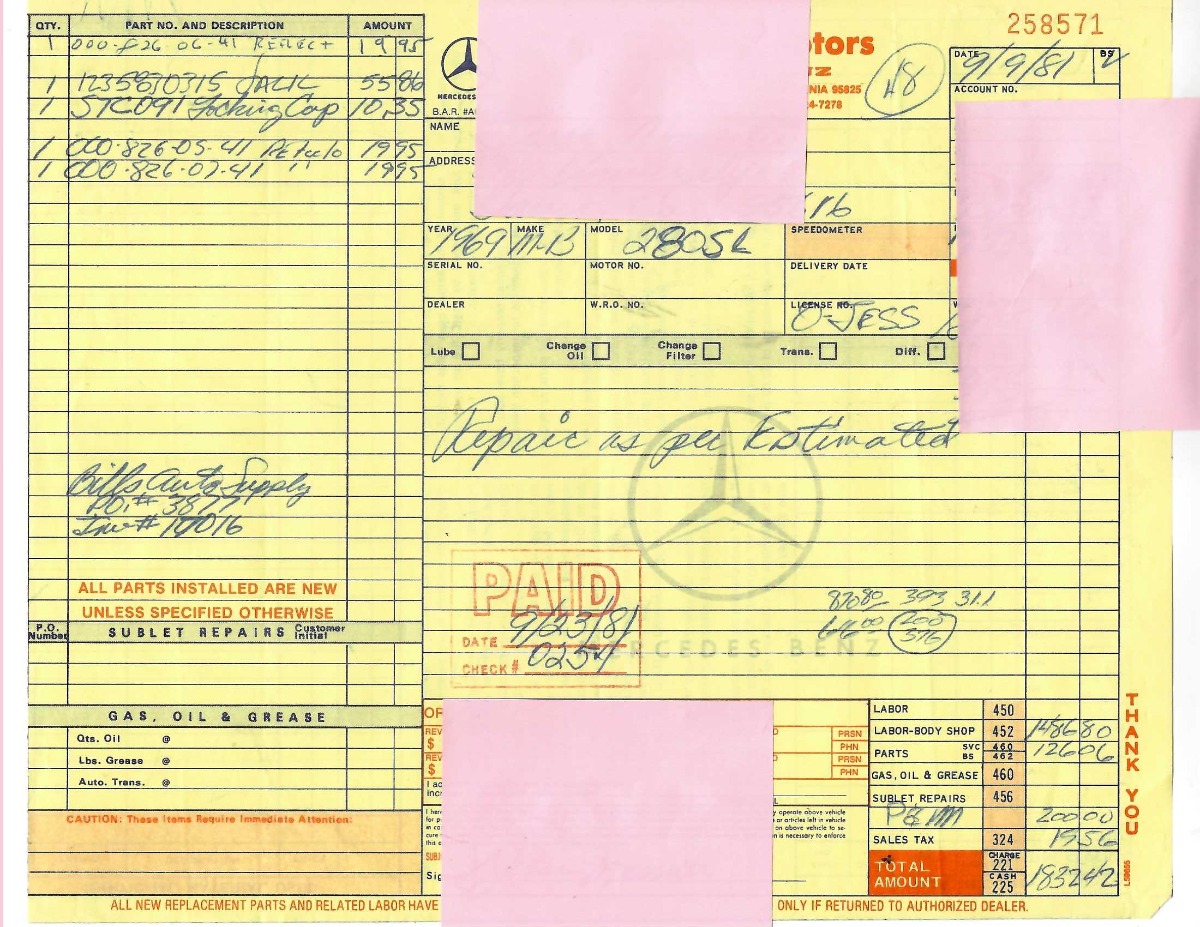 258571
QTY. PART NO. AND DESCRIPTION AMOUNT
1 000-826 06-41 Reflect 19 95
1 1235830315 JACK 55 86
1 STC091 Locking Cap 10,35
1 000-826-05-41 19 95
1 000-826-07-41 " 19 95
Bills Auto Supply
PO.# 3877
Inv# 17016
ALL PARTS INSTALLED ARE NEW
UNLESS SPECIFIED OTHERWISE
P.O. Number SUBLET REPAIRS Customer Initial
GAS, OIL & GREASE
Qts. Oil @
Lbs. Grease @
Auto. Trans. @
CAUTION: These Items Require Immediate Attention:
MERCEDES
B.A.R. #A
tors
NZ
NIA 95825
4-7278
48
DATE 9/9/81
ACCOUNT NO.
NAME
ADDRESS
YEAR 1969 MAKE M-B MODEL 280SL SPEEDOMETER
SERIAL NO. MOTOR NO. DELIVERY DATE
DEALER W.R.O. NO. LICENSE NO. O-JESS
Lube Change Oil Change Filter Trans. Diff.
Repair as per Estimated
PAID
DATE 9/23/81
CHECK # 0254
MERCEDES BENZ
870 80 393 311
616 00 200
376
OR
REV $ PRSN
PHN
REV $ PRSN
PHN
I ac
incr
I here
for p
in ca
cure
this a
SUBJ
Sig
y operate above vehicle
or articles left in vehicle
on above vehicle to se-
n is necessary to enforce
LABOR 450
LABOR-BODY SHOP 452 1486 80
PARTS SVC 460 BS 462 126 06
GAS, OIL & GREASE 460
SUBLET REPAIRS 456
P&M 200 00
SALES TAX 324 19 56
TOTAL AMOUNT CHARGE 221 CASH 225 1832 42
THANK YOU
ALL NEW REPLACEMENT PARTS AND RELATED LABOR HAVE ONLY IF RETURNED TO AUTHORIZED DEALER.